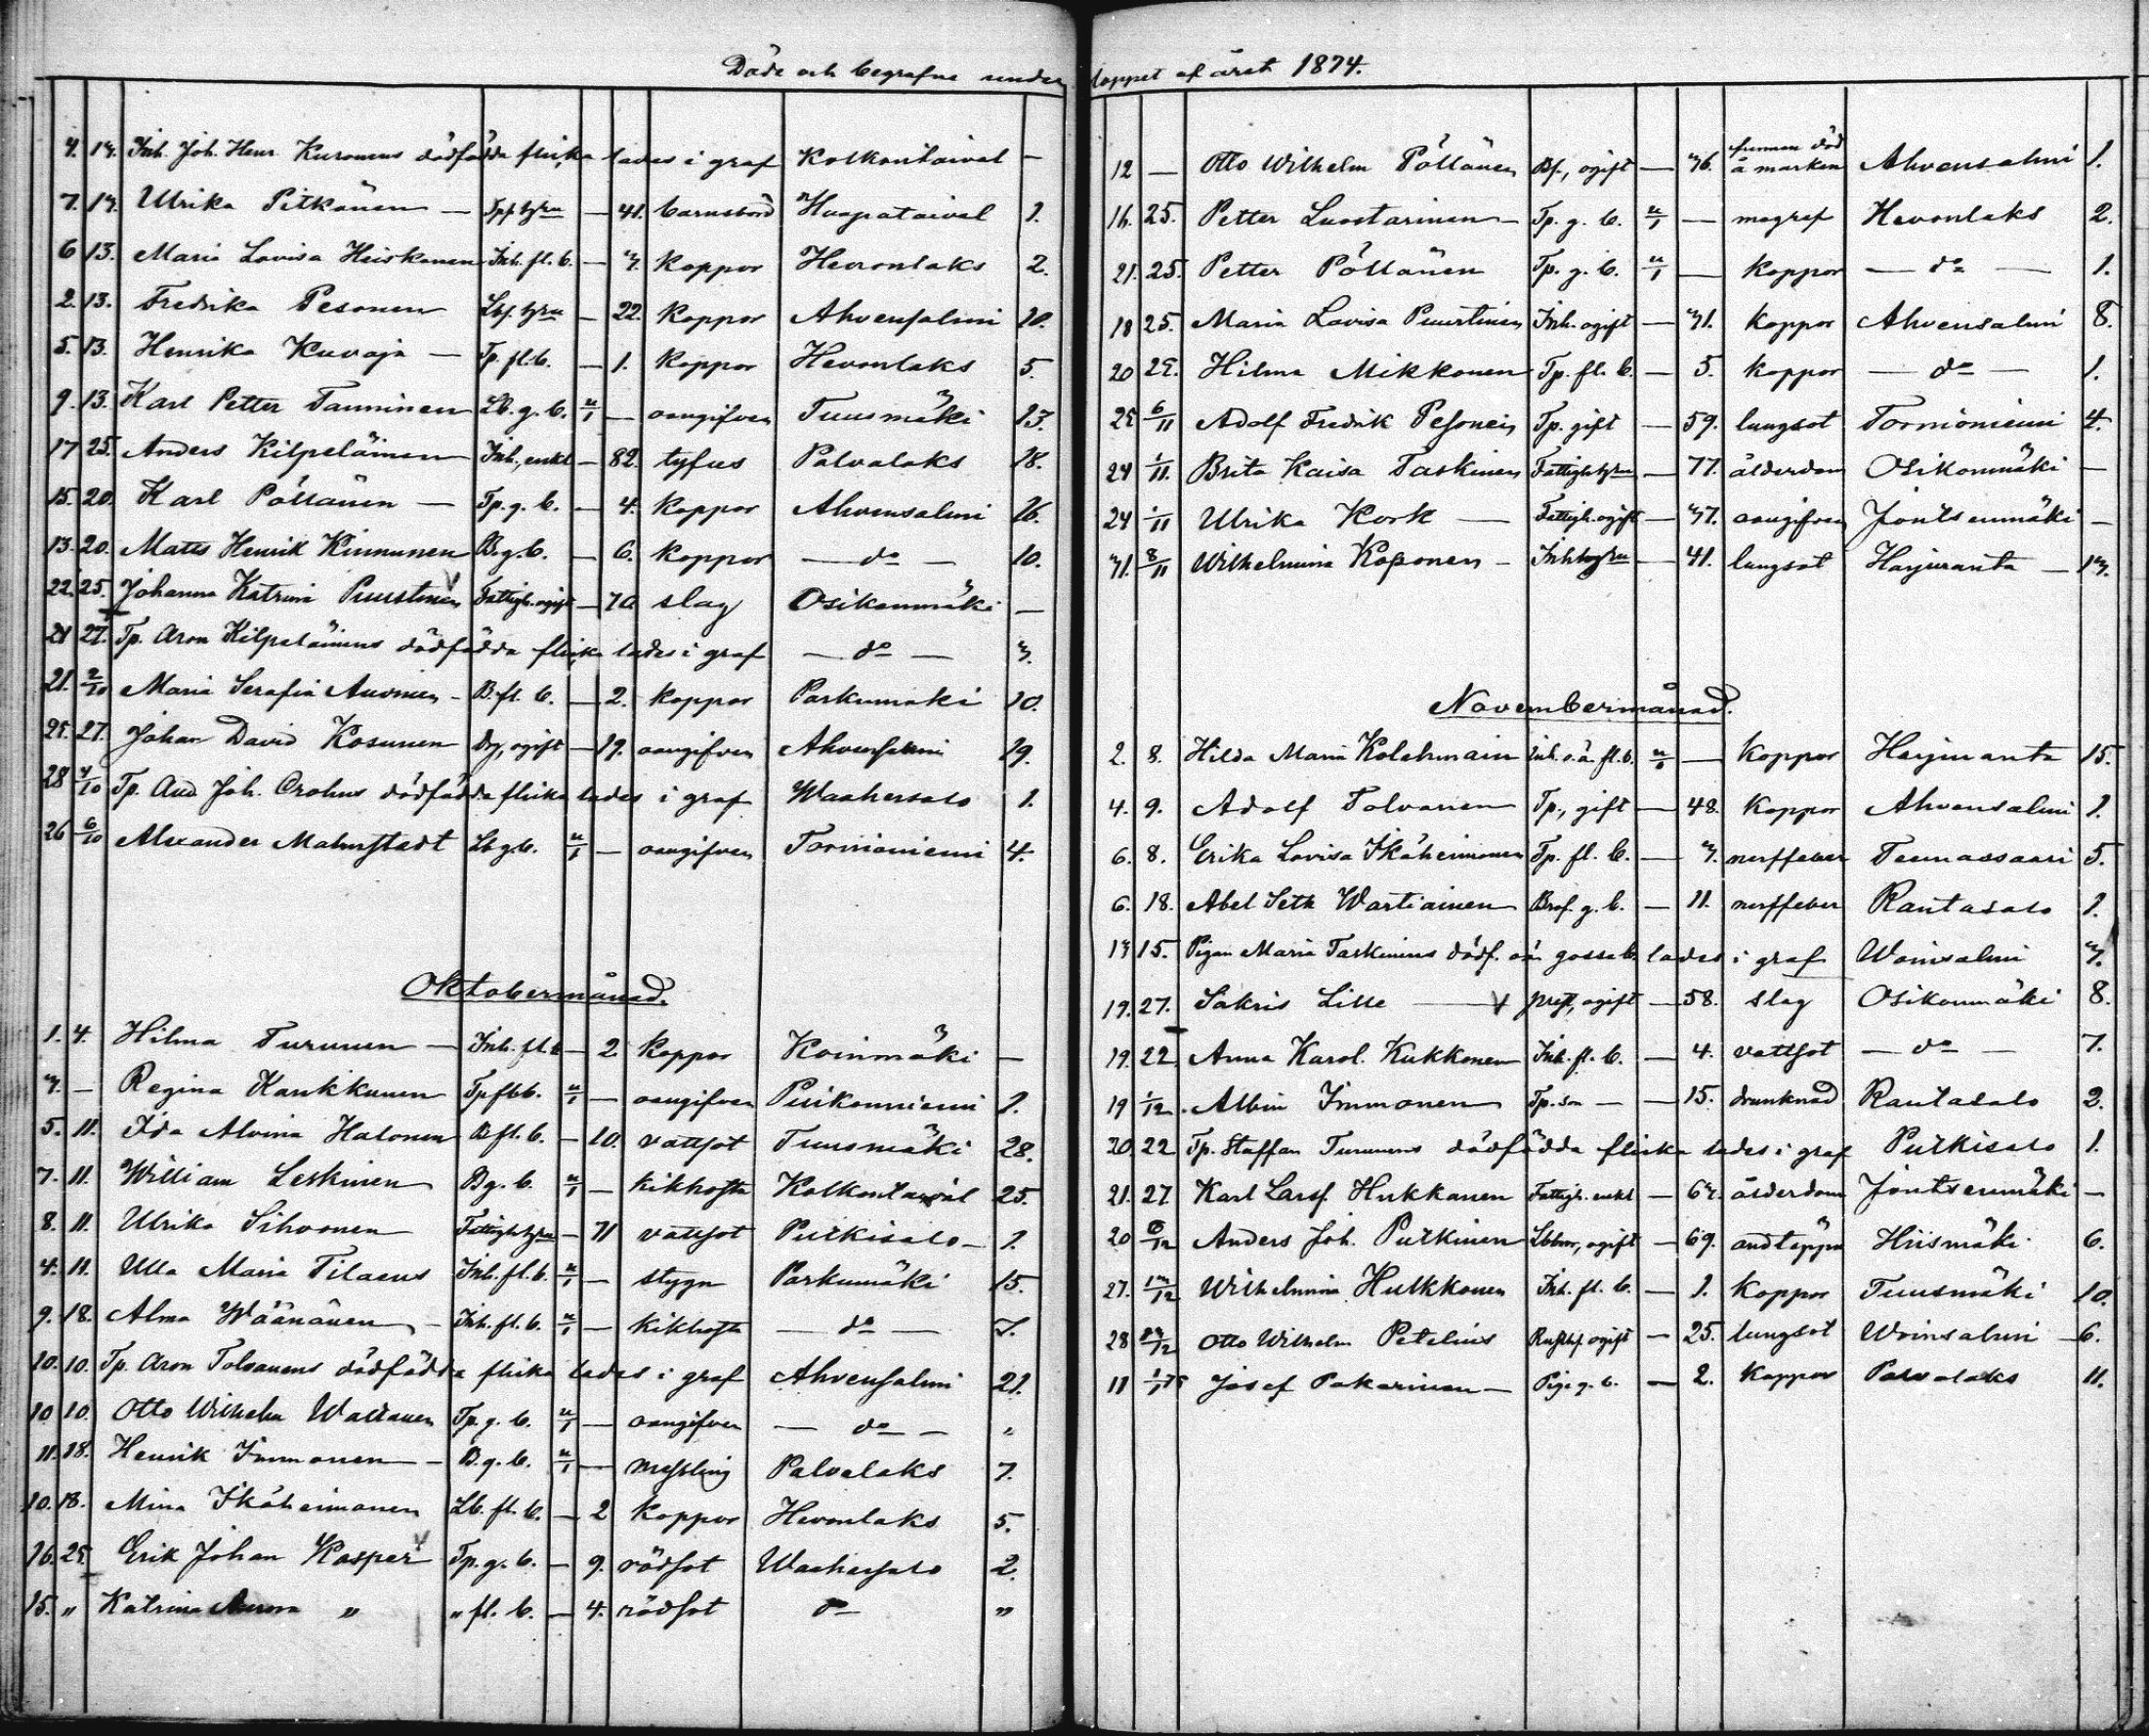 Döde och begrafne under loppet af året 1874.
7. 17. Inh. Joh. Henr. Kuronens dödfödda flicka lades i graf Kolkontaival —
7. 17. Ulrika Pitkänen — — 41. barnsbörd Haapataival 1.
6 13. Maria Lovisa Heiskanen Inh. fl. b. — 7. koppor Hevonlaks 2.
2. 13. Fredrika Pesonen — 22. koppor Ahvensalmi 10.
5. 13. Henrika Kuvaja — Tp. fl. b. — 1. koppor Hevonlaks 5.
9. 13. Karl Petter Tanninen Lb. g. b. u/1 — oangifven Tuusmäki 13.
17 25. Anders Kilpeläinen Inh., enkl — 82. tyfus Palvalaks 18.
15. 20. Karl Pöllänen — Tp. g. b. — 4. koppor Ahvensalmi 16.
13. 20. Matts Henrik Kinnunen B. g. b. — 6. koppor — do — 10.
22. 25. Johanna Katrina Puustinen Fattigh. ogift — 70 slag Osikonmäki —
21 27. Tp. Aron Kilpeläinens dödfödda flicka lades i graf — do — 7.
21. 2/10 Maria Serafia Auvinen — B. fl. b. — 2. koppor Parkumäki 10.
25. 27. Johan David Kosunen Drg, ogift — 19. oangifven Ahvensalmi 19.
28 4/10 Tp. And. Joh. Crohns dödfödda flicka lades i graf Waahersalo 1.
26 6/10 Alexander Malmstedt Lb g. b. u/1 — oangifven Tormioniemi 4.
Oktobermånad.
1. 4. Hilma Turunen — Inh. fl. b — 2. koppor Koinmäki —
7. — Regina Kaukkunen Tp fl b. u/1 — oangifven Piikonniemi 1.
5. 11. Ida Alvina Halonen B fl. b. — 10. vattsot Tuusmäki 28.
7. 11. William Leskinen B g. b. u/1 — kikhosta Kolkontaival 25.
8. 11. Ulrika Sihvonen — 71 vattsot Putkisalo — 1.
4. 11. Ulla Maria Tilaeus Inh. fl. b. u/1 — stygn Parkumäki 15.
9. 18. Alma Wäänänen — Inh. fl. b. u/1 — kikhosta — do — 7.
10. 10. Tp. Aron Tolvanens dödfödda flicka lades i graf Ahvensalmi 21.
10 10. Otto Wilhelm Tp. g. b. u/1 — oangifven — do — "
11. 18. Henrik Immonen — B. g. b. u/1 — messling Palvalaks 7.
10. 18. Mina Ikäheimonen Lb. fl. b. — 2 koppor Hevonlaks 5.
16. 25. Erik Johan Kasper Tp. g. b. — 9. rödsot Waahersalo 2.
15. " Katrina " " fl. b. — 4. rödsot do "
12 — Otto Wilhelm Pöllänen Bf., ogift — 76. funnen död å marken Ahvensalmi 1.
16. 25. Petter Luostarinen — Tp. g. b. u/1 — magref Hevonlaks 2.
21. 25. Petter Pöllänen Tp. g. b. u/1 — koppor — do — 1.
18 25. Maria Lovisa Puustinen Inh. ogift — 71. koppor Ahvensalmi 8.
20 25. Hilma Mikkonen Tp. fl. b. — 5. koppor — do — 1.
25 6/11 Adolf Fredrik Pesonen Tp. gift — 59. lungsot Tormioniemi 4.
24 1/11. Brita Kaisa Taskinen — 77. ålderdom Osikonmäki —
24 1/11 Ulrika Kork — Fattigh. ogift — 77. oangifven Jontsenmäki —
31. 8/11 Wilhelmina Kaponen — — 41. lungsot Harjuranta — 17.
Novembermånad.
2. 8. Hilda Maria Kolehmain Inh. o. ä. fl. b. u/1 — koppor Harjuranta 15.
4. 9. Adolf Tolvanen Tp., gift — 48. koppor Ahvensalmi 1.
6. 8. Erika Lovisa Ikäheimonen Tp. fl. b. — 7. nerffeber Teemassaari 5.
6. 18. Abel Seth Wartiainen g. b. — 11. nerffeber Rantasalo 1.
13 15. Pigan Maria Taskinens dödf. oä gosseb. lades i graf Woinsalmi 7.
19. 27. Sakris Lille — ogift — 58. slag Osikonmäki 8.
19. 22. Anna Karol. Kukkonen Inh. fl. b. — 4. vattsot — do — 7.
19 1/12. Albin Immonen Tp. son — — 15. drunknad Rantasalo 2.
20. 22 Tp. Staffan Turunens dödfödda flicka lades i graf Putkisalo 1.
21. 27. Karl Larsf. Hukkanen Fattigh. enkl — 67. ålderdom Jontsenmäki —
20 6/12 Anders Joh. Putkinen ogift — 69. andtäppa Hiismäki 6.
27. Wilhelmina Hulkkonen Inh. fl. b. — 1. koppor Tuusmäki 10.
28 Otto Wilhelm Petelius ogift — 25. lungsot Woinsalmi — 6.
11 Josef Pakarinen — Pige g. b. — 2. koppor Palvalaks 11.